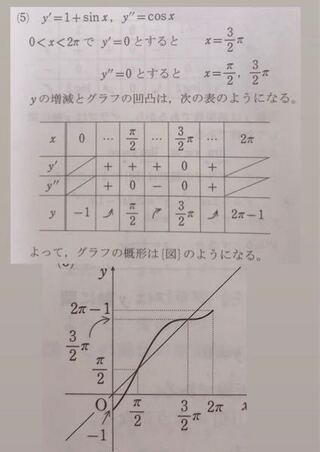 (5) y'=1+sin x, y''=cos x
0<x<2π で y'=0 とすると x=3/2π
y''=0 とすると x=π/2, 3/2π
yの増減とグラフの凹凸は，次の表のようになる。
x 0 … π/2 … 3/2π … 2π
y' + + + 0 +
y'' + 0 − 0 +
y −1 ⤴ π/2 ↱ 3/2π ⤴ 2π−1
よって，グラフの概形は[図]のようになる。
y
2π−1
3/2π
π/2
O π/2 3/2π 2π x
−1